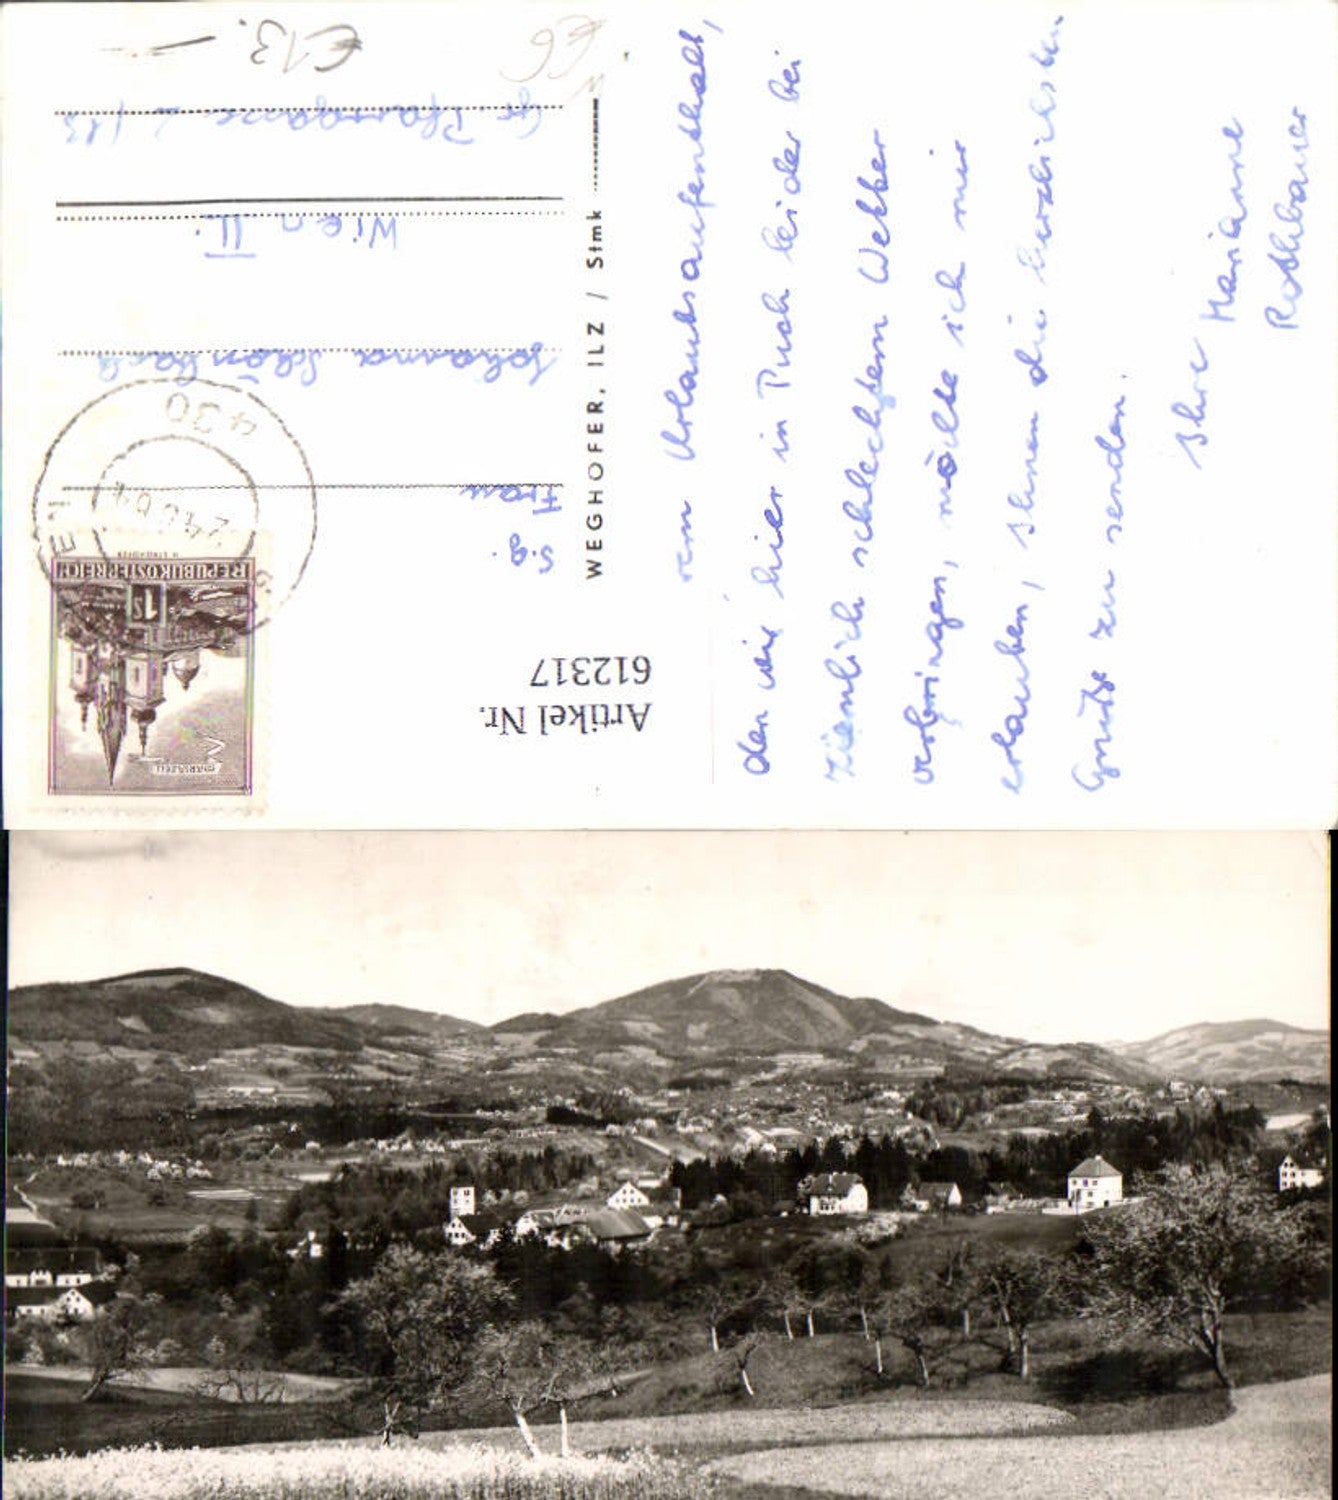 vom Urlaubsaufenthalt,
den wir hier in Puch leider bei
ziemlich schlechtem Wetter
verbringen, möchte ich mir
erlauben, Ihnen die herzlichsten
Grüße zu senden.
Ihre Marianne
Rothbauer
WEGHOFER, ILZ / Stmk
S.g.
Frau
Johanna
Wien II.
Gr. Pfarrgasse
€ 13.-
€6
430
REPUBLIK ÖSTERREICH
1S
MARIAZELL
Artikel Nr.
612317